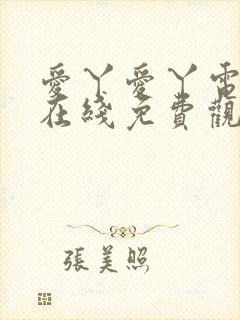 愛丫愛丫電
在綫免費觀
張美照